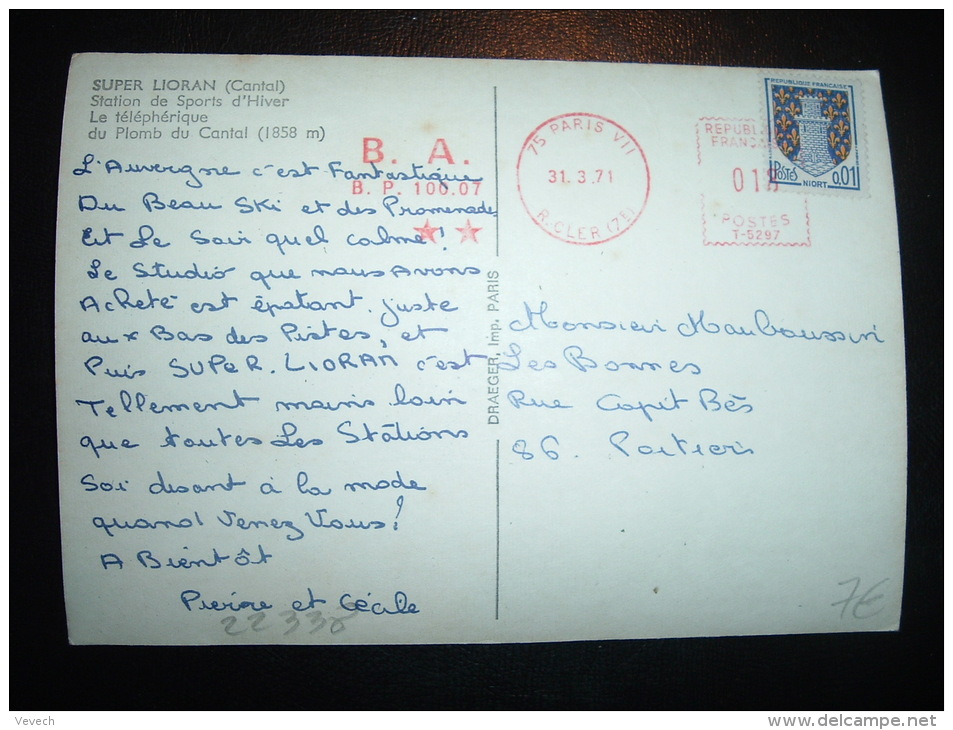 SUPER LIORAN (Cantal)
Station de Sports d'Hiver
Le téléphérique
du Plomb du Cantal (1858 m)
B. A.
B. P. 100.07
L'Auvergne c'est Fantastique
Du Beau Ski et des Promenades
Et Le Soir quel calme!
Le Studio que nous Avons
Acheté est épatant, juste
aux Bas des Pistes, et
Puis SUPER. LIORAN c'est
Tellement moins loin
que toutes Les Stations
Soi disant à la mode
quand Venez Vous?
A Bientôt
Pierre et Cécile
22338
DRAEGER, Imp. PARIS
75 PARIS VII
31.3.71
R. CLER (7E)
REPUBLI
FRANCA
01
POSTES
T-5297
REPUBLIQUE FRANCAISE
POSTES
0,01
NIORT
Monsieur Mauboussin
Les Bonnes
Rue Capit Bès
86. Poitiers
7€
Vevech
www.delcampe.net